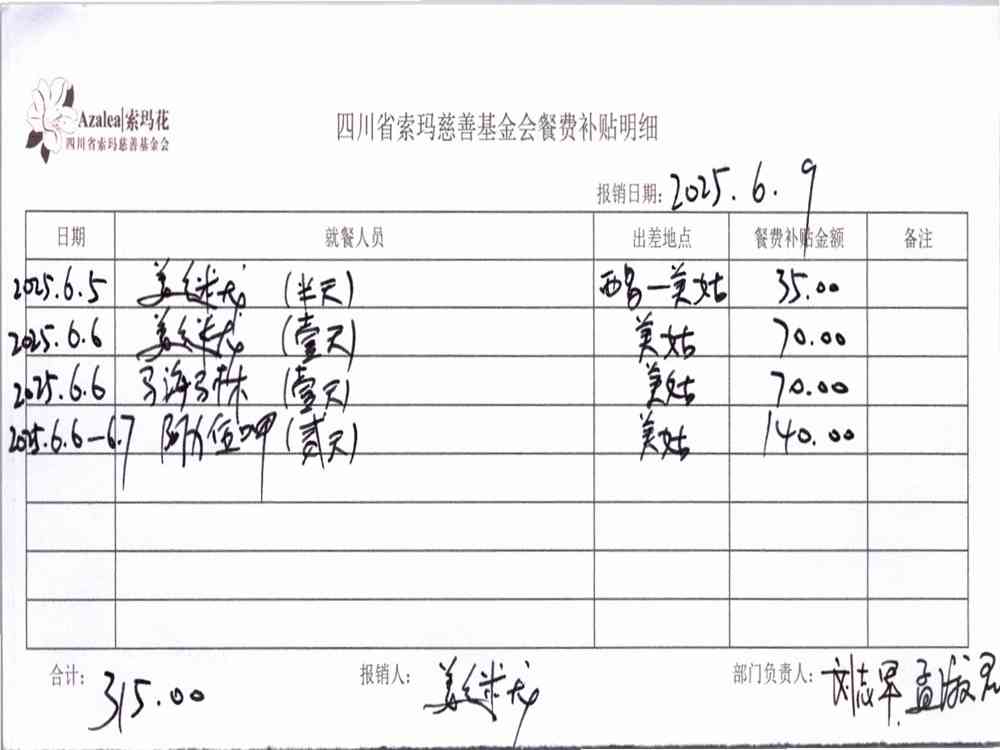 Azalea|索玛花
四川省索玛慈善基金会
四川省索玛慈善基金会餐费补贴明细
报销日期：2025.6.9
日期 就餐人员 出差地点 餐费补贴金额 备注
2025.6.5 (半天) 西昌—美姑 35.00
2025.6.6 (壹天) 美姑 70.00
2025.6.6 马海马林 (壹天) 美姑 70.00
2025.6.6-6.7 (贰天) 美姑 140.00
合计：315.00 报销人： 部门负责人：